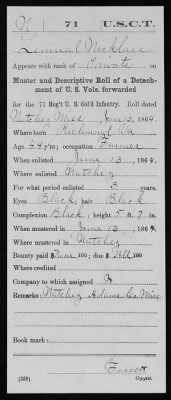 N | 71 | U.S.C.T.
Lemual Nicklace
Appears with rank of Private on
Muster and Descriptive Roll of a Detach-
ment of U. S. Vols. forwarded
for the 71 Reg't U. S. Col'd Infantry. Roll dated
Natchez Miss June 13, 1864.
Where born Richmond Va
Age 44 y'rs; occupation Farmer
When enlisted June 13, 1864.
Where enlisted Natchez
For what period enlisted 3 years.
Eyes Black; hair Black
Complexion Black; height 5 ft. 7 in.
When mustered in June 13, 1864
Where mustered in Natchez
Bounty paid $ 100; due $ 100
Where credited
Company to which assigned A
Remarks: Natchez Adams Co. Miss
Book mark:
(339) Copyist.